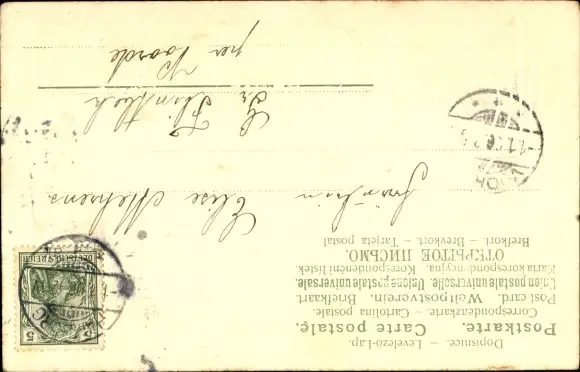 Dopisnice. – Levelező-Lap.
Postkarte. Carte postale.
Correspondenzkarte. – Cartolina postale.
Post card. Weltpostverein. Briefkaart.
Union postale universelle. Unione postale universale.
Karta korespondencyjna. Korespondenční lístek.
ОТКРЫТОЕ ПИСЬМО.
Brefkort. – Brevkort. – Tarjeta postal
5
DEUTSCHES REICH
Fräulein
Elise Mehrens
Gr. Flintbek
per Voorde